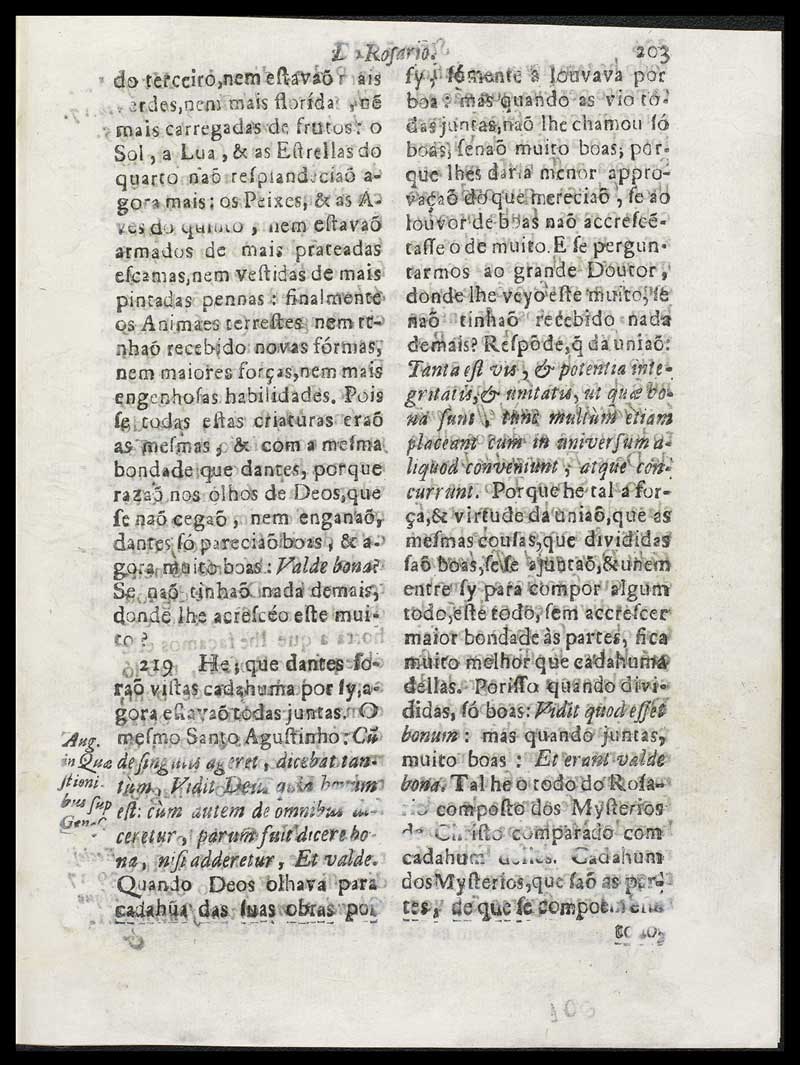 Rosario. 203
do terceiro, nem eſtavaõ mais
verdes, nem mais florida, nẽ
mais carregadas de frutos: o
Sol, a Lua, & as Eſtrellas do
quarto naõ reſplandeciaõ a-
gora mais: os Peixes, & as A-
ves do quinto, nem eſtavaõ
armados de mais prateadas
eſcamas, nem veſtidas de mais
pintadas pennas: finalmente
os Animaes terreſtes nem te-
nhaõ recebido novas fórmas,
nem maiores forças, nem mais
engenhoſas habilidades. Pois
ſe todas eſtas criaturas eraõ
as meſmas, & com a meſma
bondade que dantes, porque
razaõ nos olhos de Deos, que
ſe naõ cegaõ, nem enganaõ,
dantes ſó pareciaõ boas, & a-
gora muito boas: Valde bona?
Se naõ tinhaõ nada demais,
donde lhe acreſcéo eſte mui-
to?
219 He, que dantes fo-
raõ viſtas cadahuma por ſy, a-
gora eſtavaõ todas juntas. O
meſmo Santo Aguſtinho: Cũ
de ſingulis ageret, dicebat tan-
tum, Vidit Deus quia bonum
eſt: cùm autem de omnibus di-
ceretur, parum fuit dicere bo-
na, niſi adderetur, Et valde.
Quando Deos olhava para
cadahũa das ſuas obras por
Aug.
in Quæ
ſtioni-
bus ſup
Gen.
ſy, ſómente a louvava por
boa: mas quando as vio to-
das juntas, naõ lhe chamou ſó
boas, ſenaõ muito boas; por-
que lhes daria menor appro-
vaçaõ do que mereciaõ, ſe ao
louvor de boas naõ accreſcẽ-
taſſe o de muito. E ſe pergun-
tarmos ao grande Doutor,
donde lhe veyo eſte muito, ſe
naõ tinhaõ recebido nada
demais? Reſpõde, q̃ da uniaõ:
Tanta eſt vis, & potentia inte-
gritatis, & unitatis, ut quæ bo-
na ſunt, tunc multùm etiam
placeant cum in univerſum a-
liquod conveniunt, atque con-
currunt. Porque he tal a for-
ça, & virtude da uniaõ, que as
meſmas couſas, que divididas
ſaõ boas, ſe ſe ajuntaõ, & unem
entre ſy para compor algum
todo, eſte todo, ſem accreſcer
maior bondade às partes, fica
muito melhor que cadahuma
dellas. Poriſſo quando divi-
didas, ſó boas: Vidit quod eſſet
bonum: mas quando juntas,
muito boas: Et erant valde
bona. Tal he o todo do Roſa-
rio compoſto dos Myſterios
de Chriſto comparado com
cadahum delles. Cadahum
dos Myſterios, que ſaõ as par-
tes, de que ſe compoem eſte
todo,